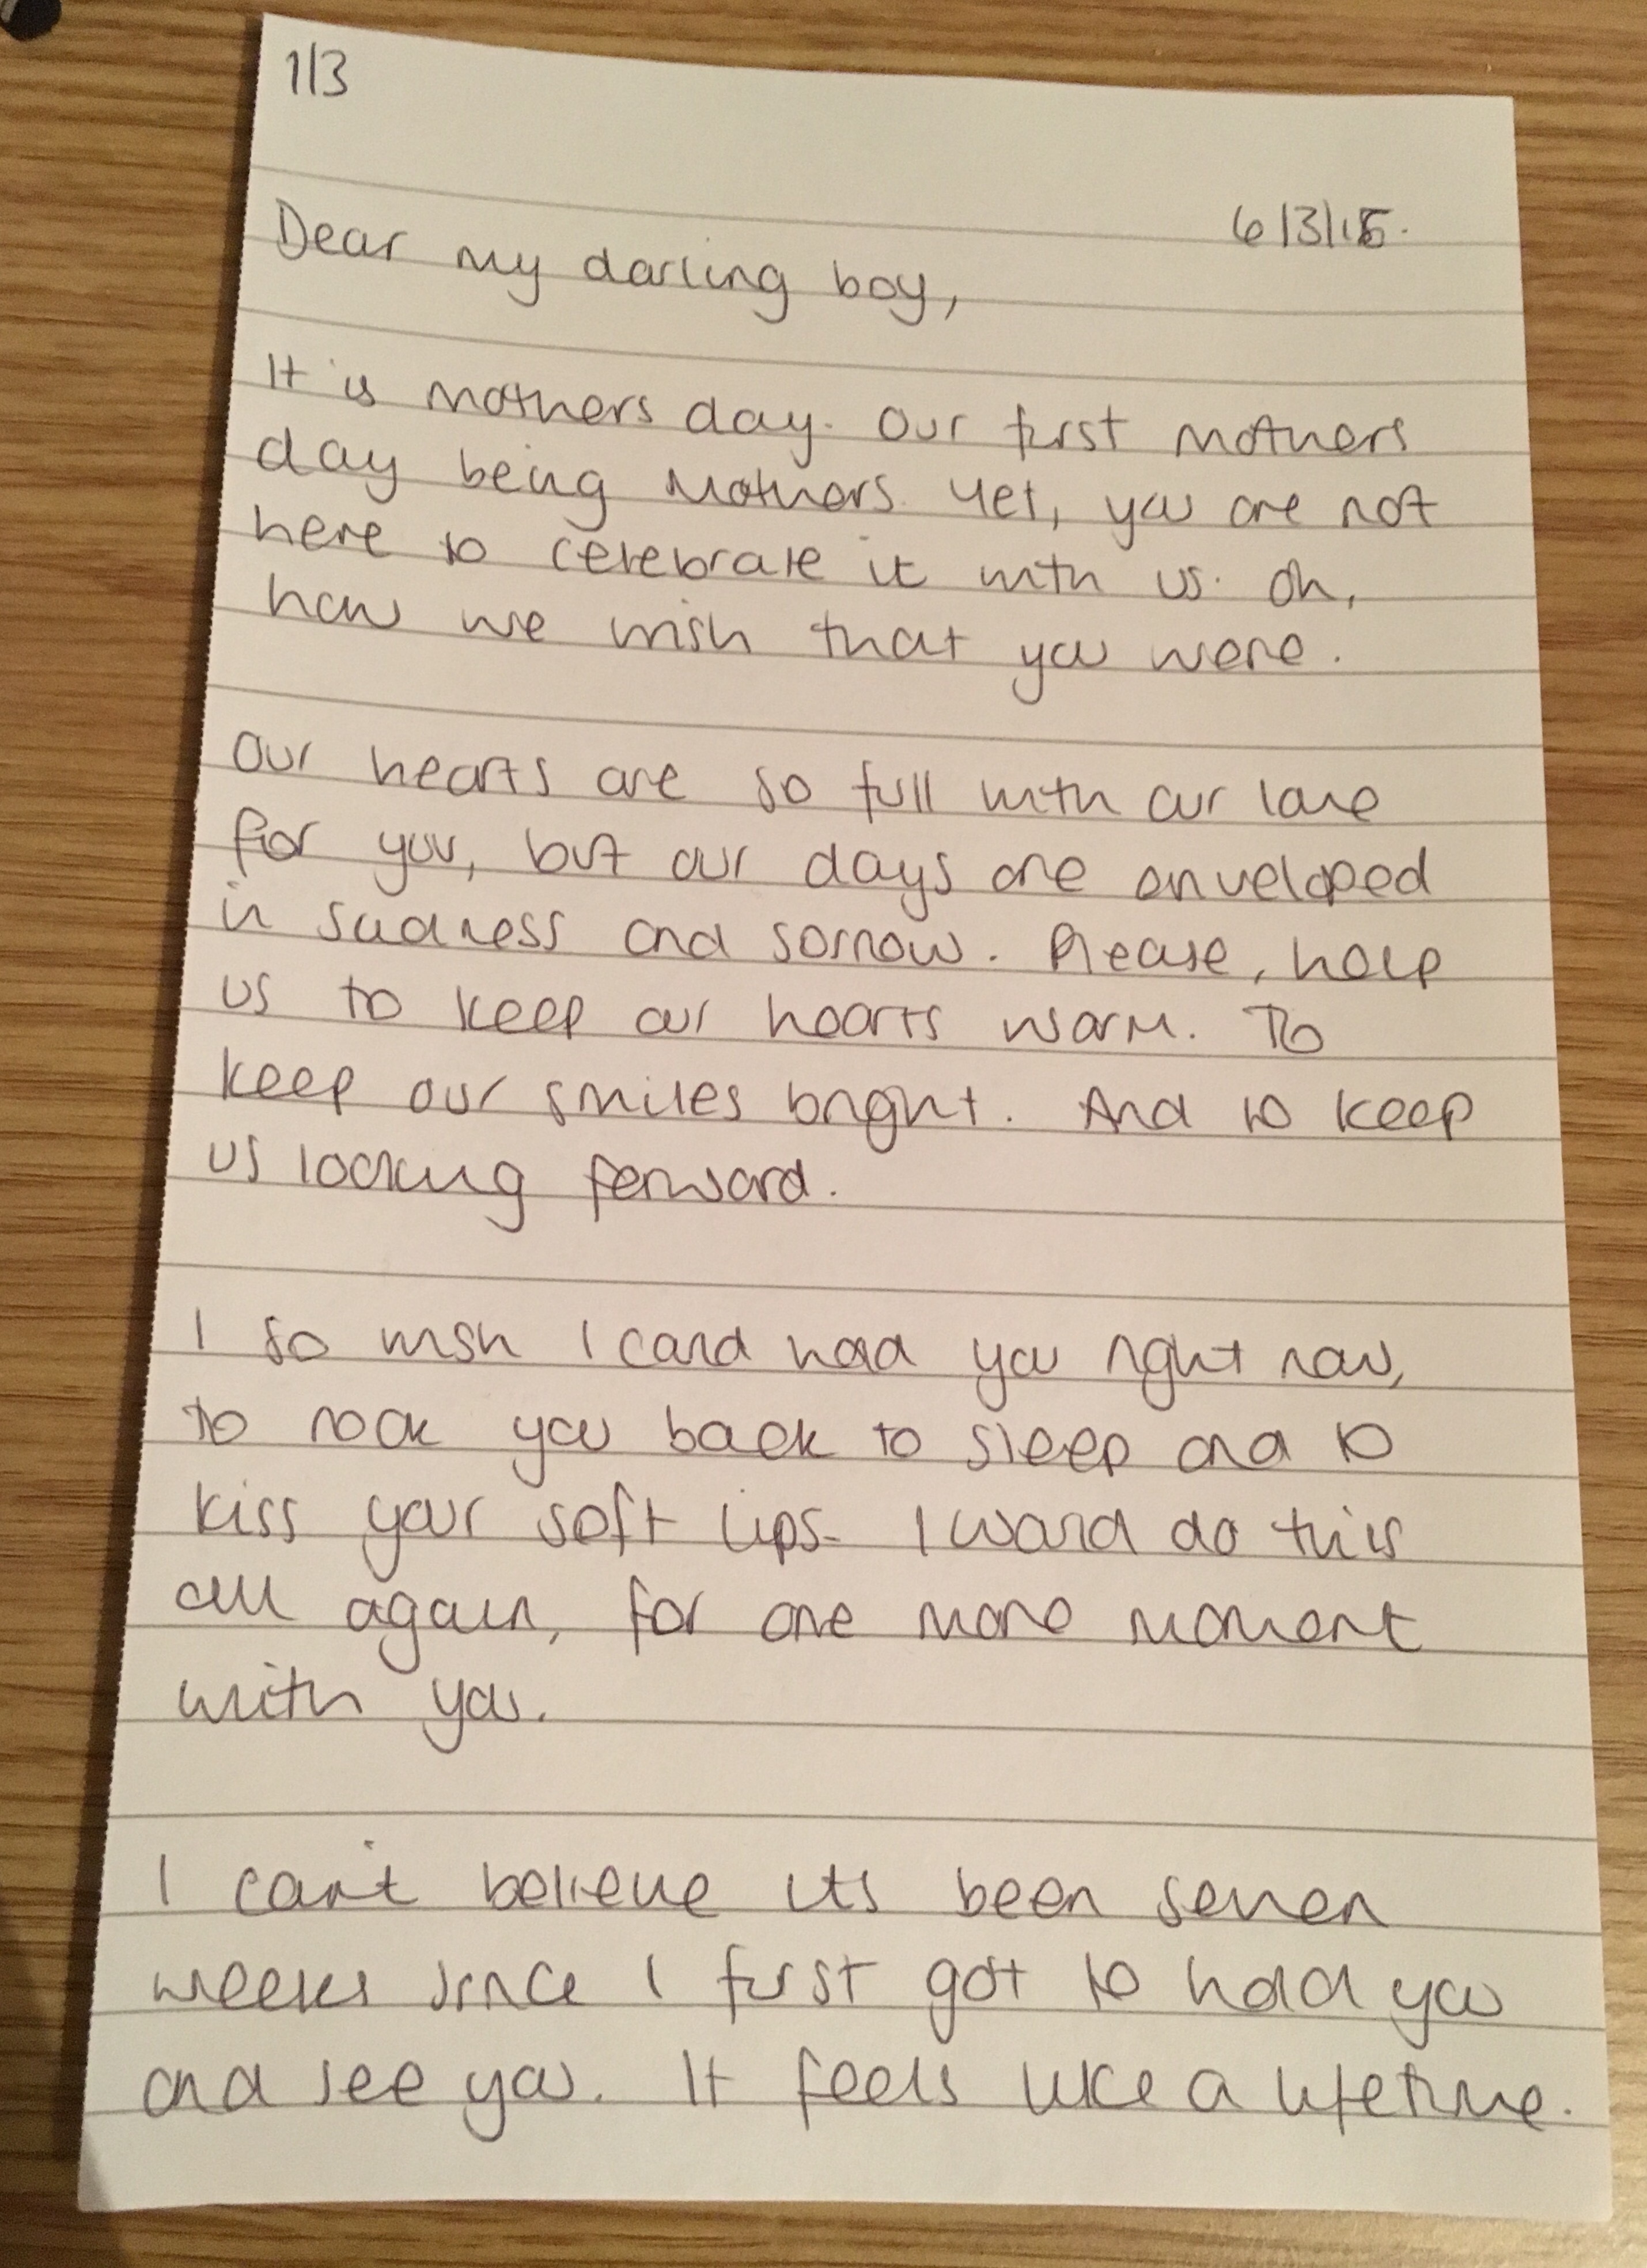 1/3
6/3/16.
Dear my darling boy,
It is mothers day. Our first mothers
day being mothers. Yet, you are not
here to celebrate it with us. Oh,
how we wish that you were.
Our hearts are so full with our love
for you, but our days are enveloped
in sadness and sorrow. Please, help
us to keep our hearts warm. To
keep our smiles bright. And to keep
us looking forward.
I so wish I could hold you right now,
to rock you back to sleep and to
kiss your soft lips. I would do this
all again, for one more moment
with you.
I can't believe its been seven
weeks since I first got to hold you
and see you. It feels like a lifetime.